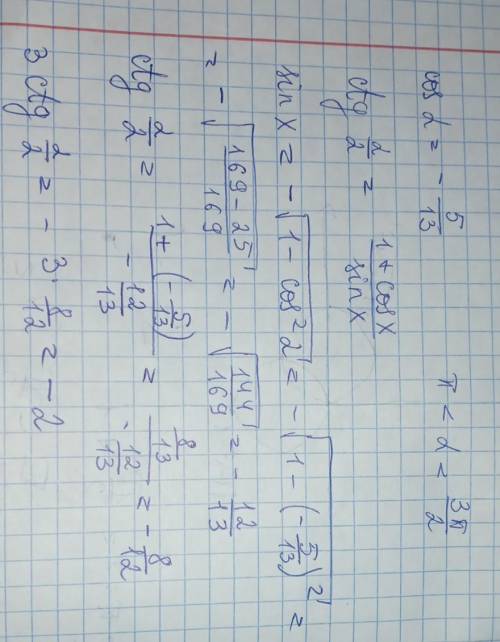 cos α = - 5/13    π < α = 3π/2
ctg α/2 = (1 + cos x)/(sin x)
sin x = - √(1 - cos² α) = - √(1 - (-5/13)²) =
= - √((169 - 25)/169) = - √(144/169) = - 12/13
ctg α/2 = (1 + (-5/13))/(- 12/13) = (8/13)/(- 12/13) = - 8/12
3 ctg α/2 = - 3 · 8/12 = - 2